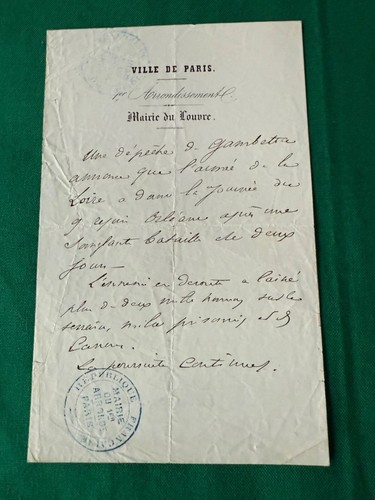 VILLE DE PARIS.
1er Arrondissement.
Mairie du Louvre.
Une dépêche de Gambetta
annonce que l'armée de la
Loire a dans la journée du
9 repris Orléans après une
sanglante bataille de deux
jours
L'ennemi en déroute a laissé
plus de deux mille hommes sur le
terrain, mille prisonniers et
Canons.
La poursuite continue.
RÉPUBLIQUE FRANÇAISE
MAIRIE
DU 1er
ARRONDT
PARIS